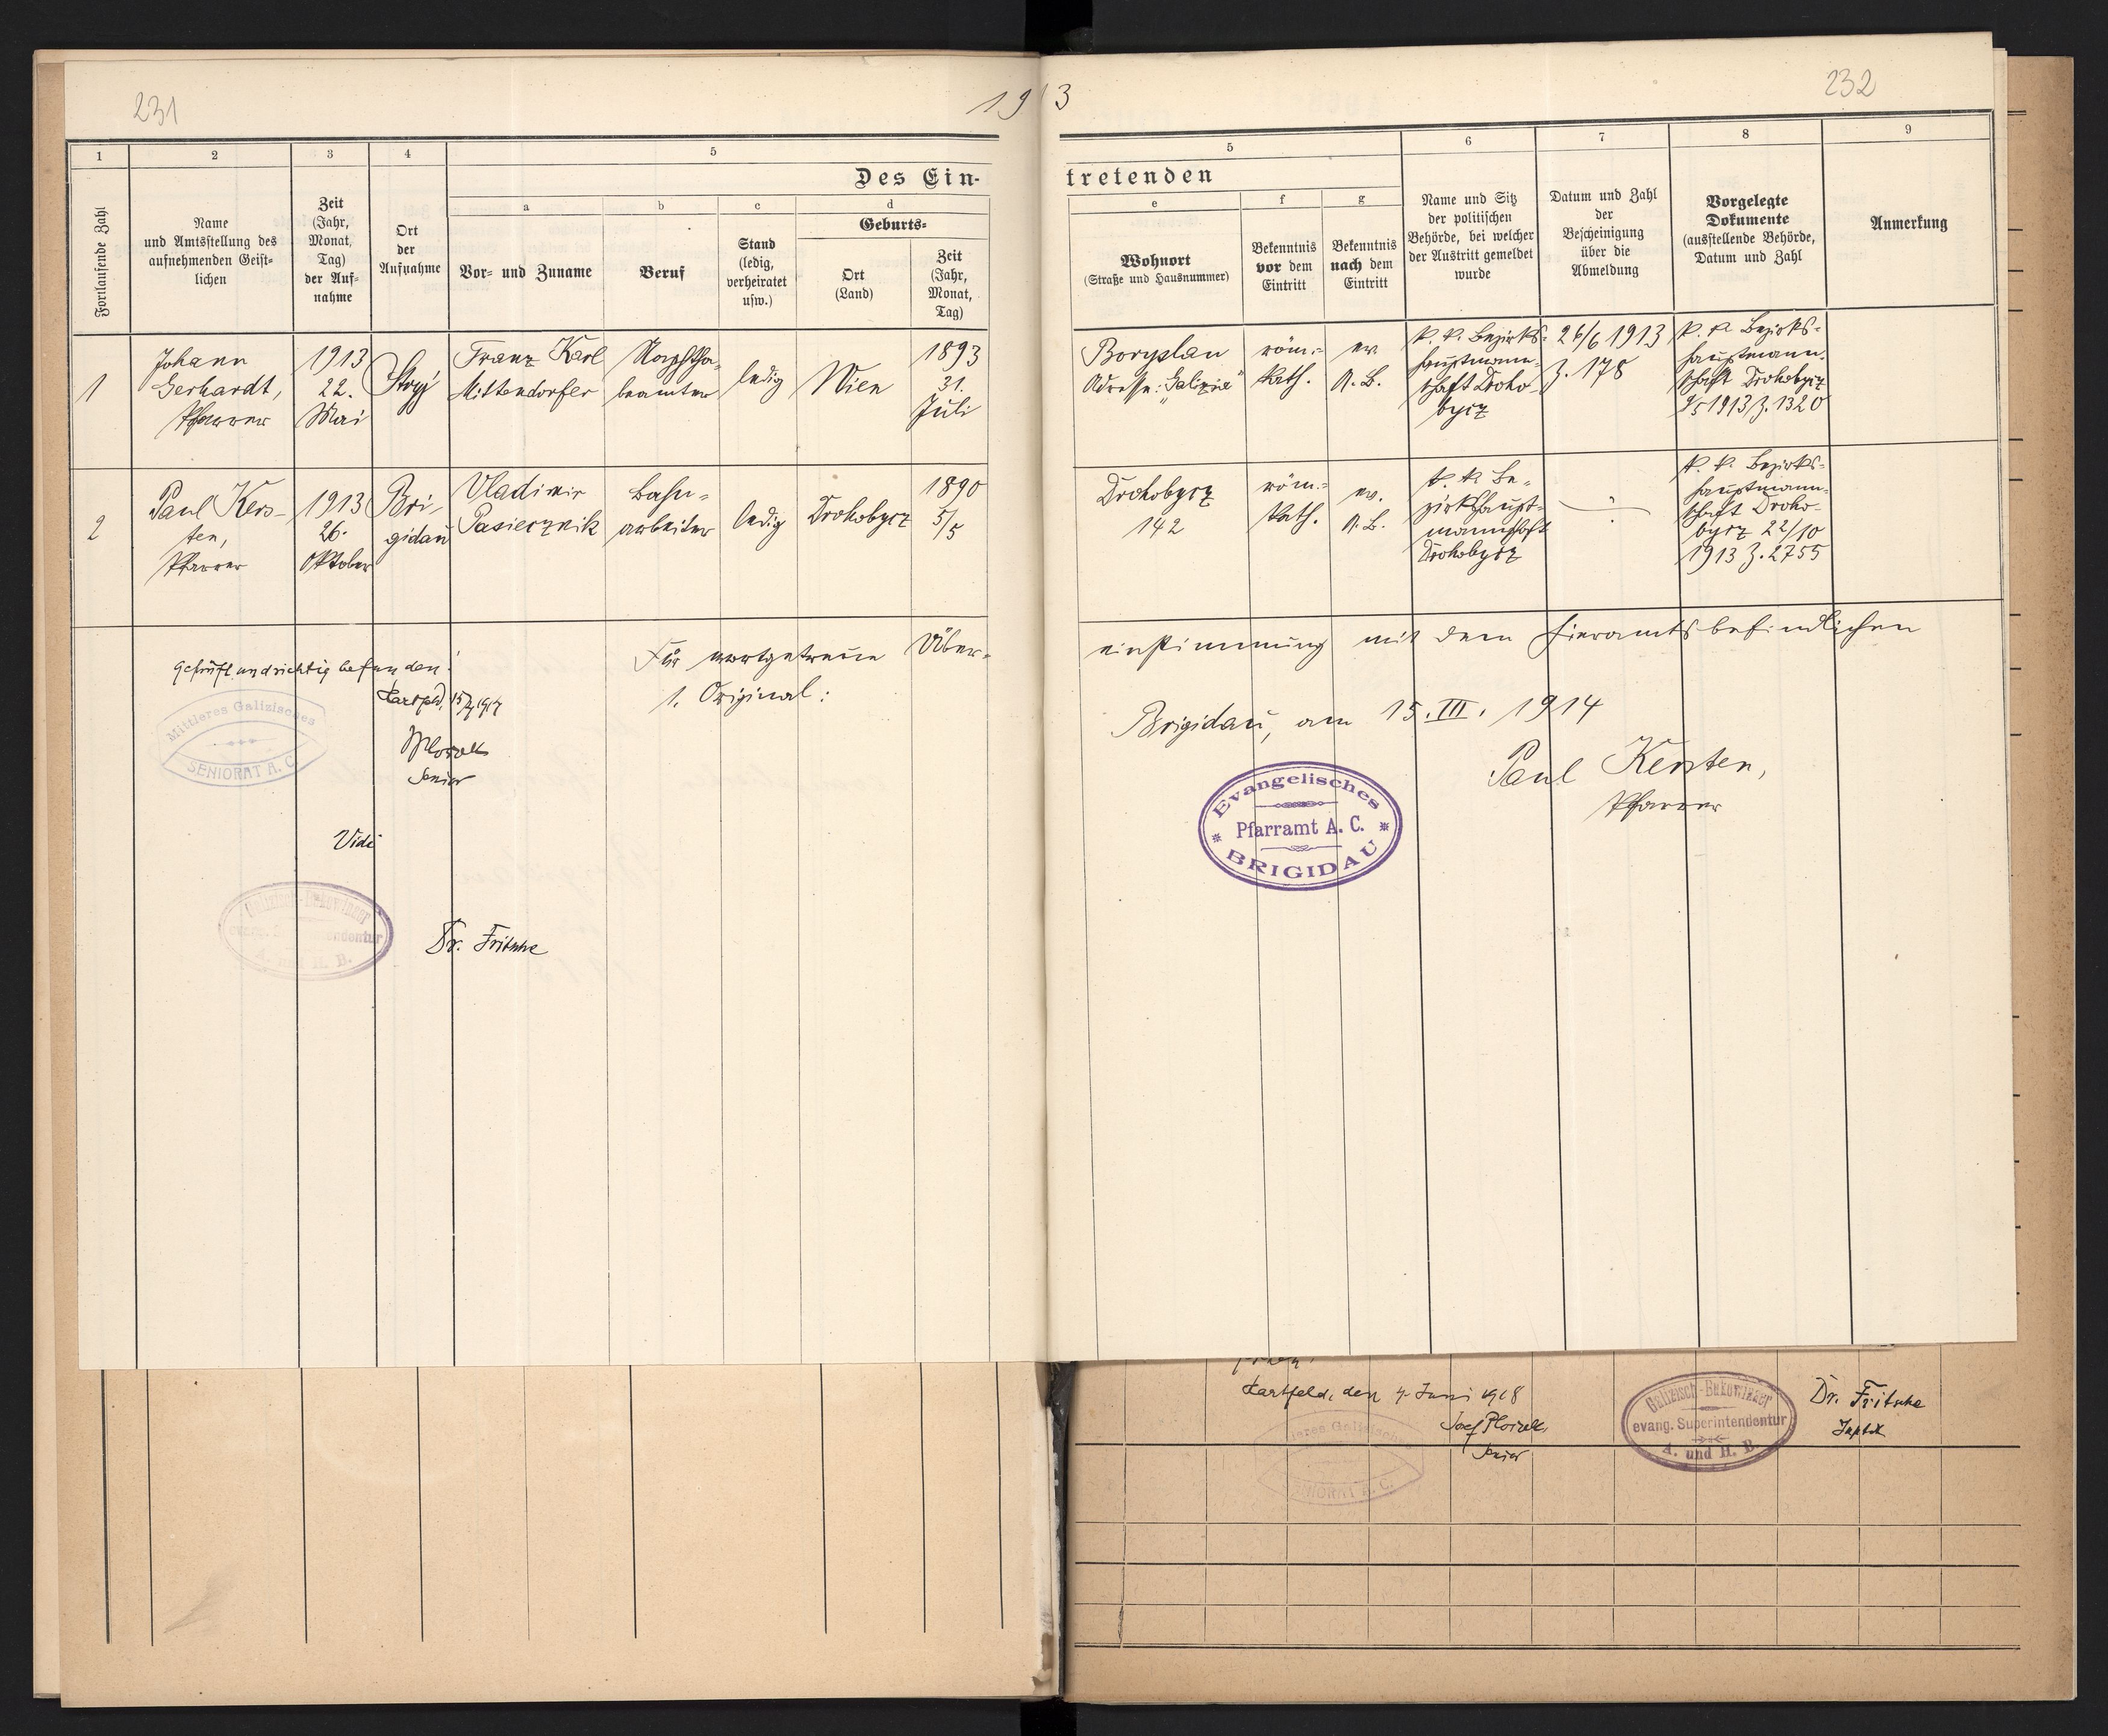 231
1913
232
1
2
3
4
5
5
6
7
8
9
Des Ein-
tretenden
Fortlaufende Zahl
Name
und Amtsstellung des
aufnehmenden Geist-
lichen
Zeit
(Jahr,
Monat,
Tag)
der Auf-
nahme
Ort
der
Aufnahme
a
Vor- und Zuname
b
Beruf
c
Stand
(ledig,
verheiratet
usw.)
d
Geburts-
Ort
(Land)
Zeit
(Jahr,
Monat,
Tag)
e
Wohnort
(Straße und Hausnummer)
f
Bekenntnis
vor dem
Eintritt
g
Bekenntnis
nach dem
Eintritt
Name und Sitz
der politischen
Behörde, bei welcher
der Austritt gemeldet
wurde
Datum und Zahl
der
Bescheinigung
über die
Abmeldung
Vorgelegte
Dokumente
(ausstellende Behörde,
Datum und Zahl
Anmerkung
1
Johann
Gerhardt,
Pfarrer
1913
22.
Mai
Stryj
Franz Karl
Mittendorfer
Naphtha-
beamter
ledig
Wien
1893
31.
Juli
Boryslau
Adresse: "Galizia"
röm.-
kath.
ev.
A. B.
k. k. Bezirks-
hauptmann-
schaft Droho-
bycz
26/6 1913
Z. 178
k. k. Bezirks-
hauptmann-
schaft Drohobycz
1913 Z. 1320
2
Paul Kers-
ten,
Pfarrer
1913
26.
Oktober
Bri-
gidau
Vladimir
Pasiecznik
Bahn-
arbeiter
ledig
Drohobycz
1890
5/5
Drohobycz
142
röm.-
kath.
ev.
A. B.
k. k. Be-
zirkshaupt-
mannschaft
Drohobycz
k. k. Bezirks-
hauptmann-
schaft Droho-
bycz 22/10
1913 Z. 2755
Geprüft und richtig befunden!
Hartfeld,
Senior
Mittleres Galizisches
SENIORAT A. C.
Für wortgetreue Über-
einstimmung mit dem hieramts befindlichen
1. Original:
Brigidau, am 15. III. 1914
Paul Kersten,
Pfarrer
Evangelisches
Pfarramt A. C.
BRIGIDAU
Vidi
Galizisch-Bukowinaer
evang. Superintendentur
A. und H. B.
Dr. Fritsche
Hartfeld, den 4. Juni 1918
Josef Ploszek,
Senior
Mittleres Galizisches
SENIORAT A. C.
Galizisch-Bukowinaer
evang. Superintendentur
A. und H. B.
Dr. Fritsche